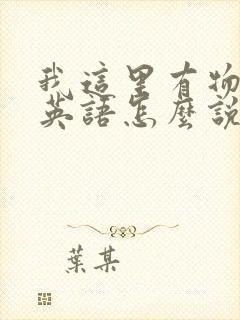 我這里有物
英語怎麼說
葉某